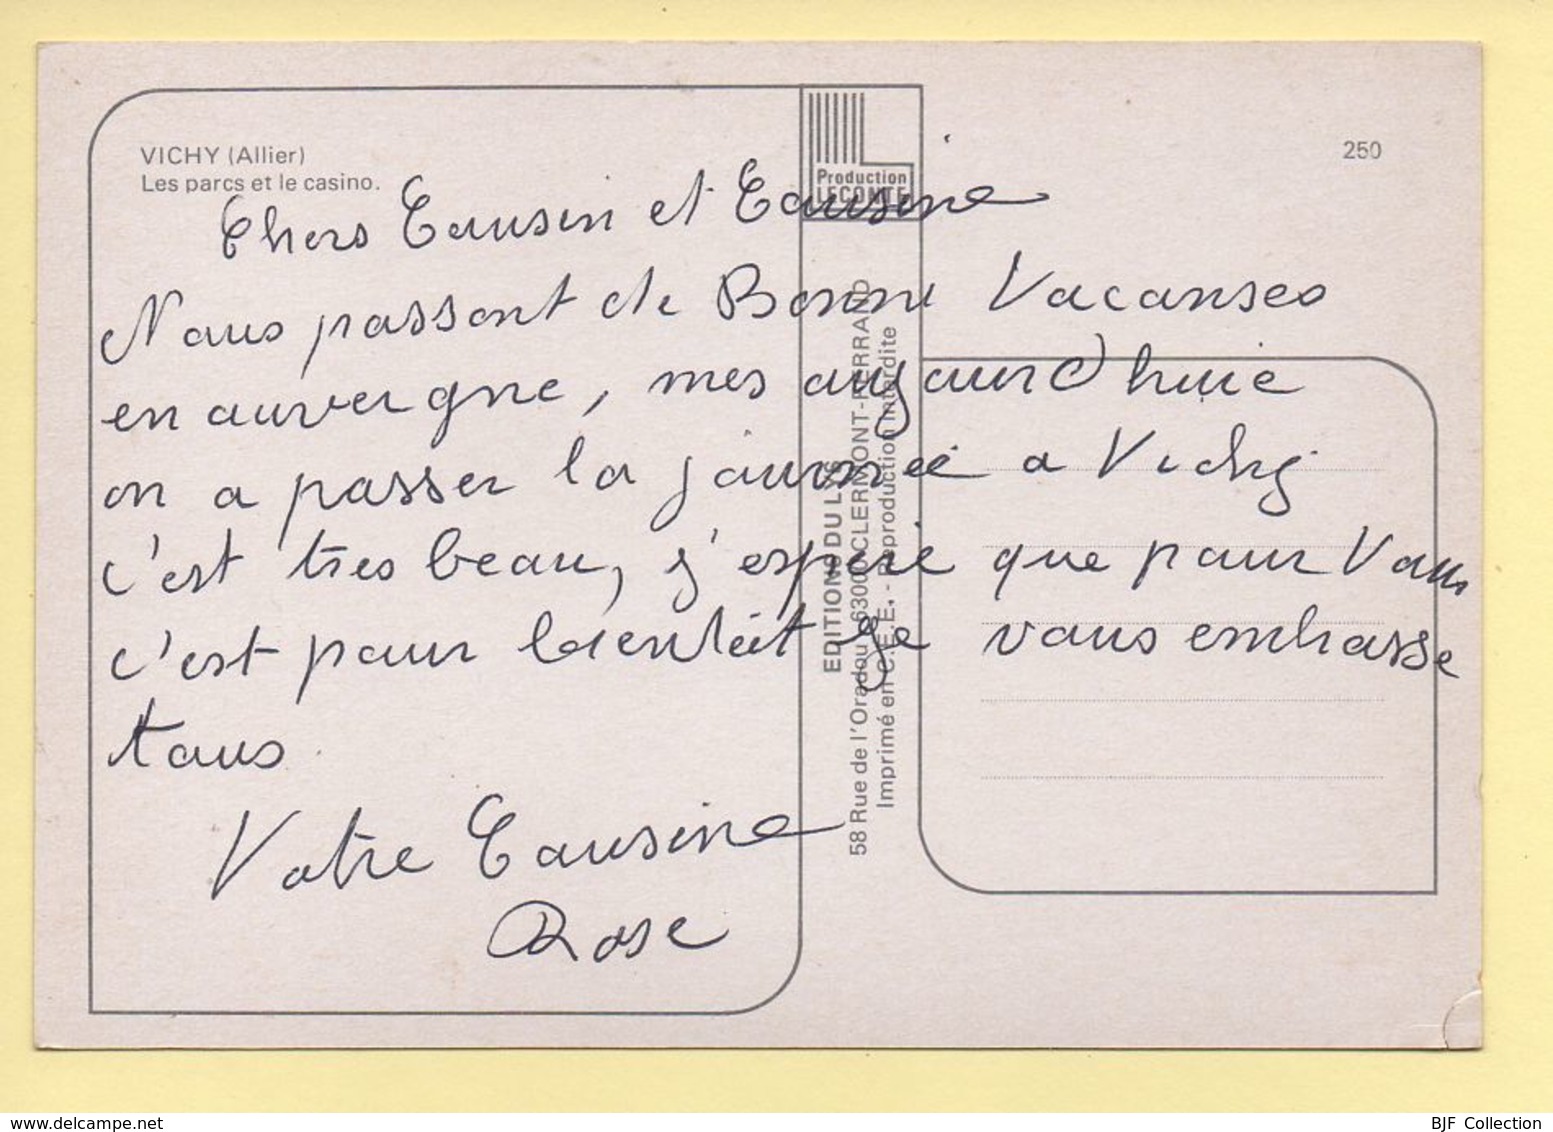 VICHY (Allier)
Les parcs et le casino.
250
Production
LECONTE
Chers Cousin et Cousine
Nous passont de Bonne Vacanses
en auvergne, mes aujourd'huie
on a passer la journée a Vichy
c'est tres beau, j'espere que pour Vous
c'est pour bientôt Je vous embrasse
tous
Votre Cousine
Rose
EDITIONS DU LYS
58 Rue de l'Oradou 63000 CLERMONT-FERRAND
Imprimé en C.E.E. - Reproduction interdite
www.delcampe.net
BJF Collection